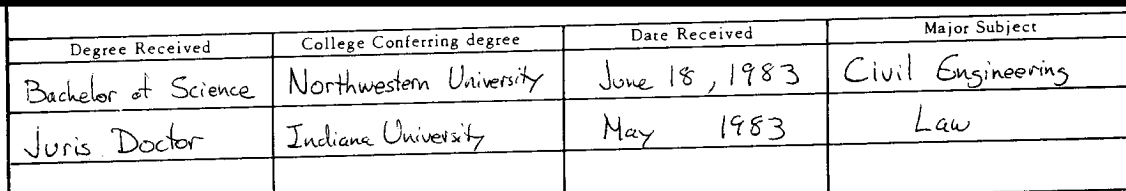 Degree Received College Conferring degree Date Received Major Subject
Bachelor of Science Northwestern University June 18, 1983 Civil Engineering
Juris Doctor Indiana University May 1983 Law